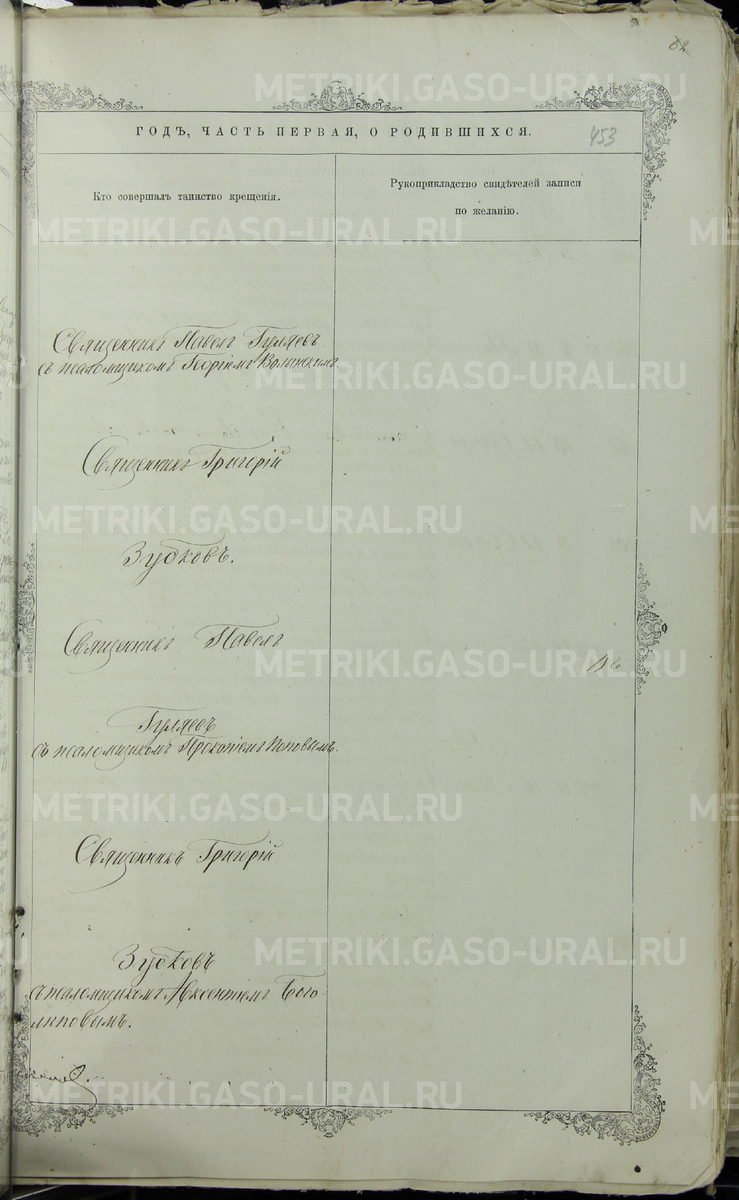 62
ГОДЪ, ЧАСТЬ ПЕРВАЯ, О РОДИВШИХСЯ.
453
Кто совершалъ таинство крещенія.
Рукоприкладство свидѣтелей записи
по желанію.
Священникъ Павелъ Гуляевъ
съ псаломщикомъ Георгіемъ Волынскимъ.
Священникъ Григорій
Зубковъ.
Священникъ Павелъ
Гуляевъ
съ псаломщикомъ Прокопіемъ Поповымъ.
Священникъ Григорій
Зубковъ
съ псаломщикомъ Авксентіемъ Бого-
липовымъ.
METRIKI.GASO-URAL.RU